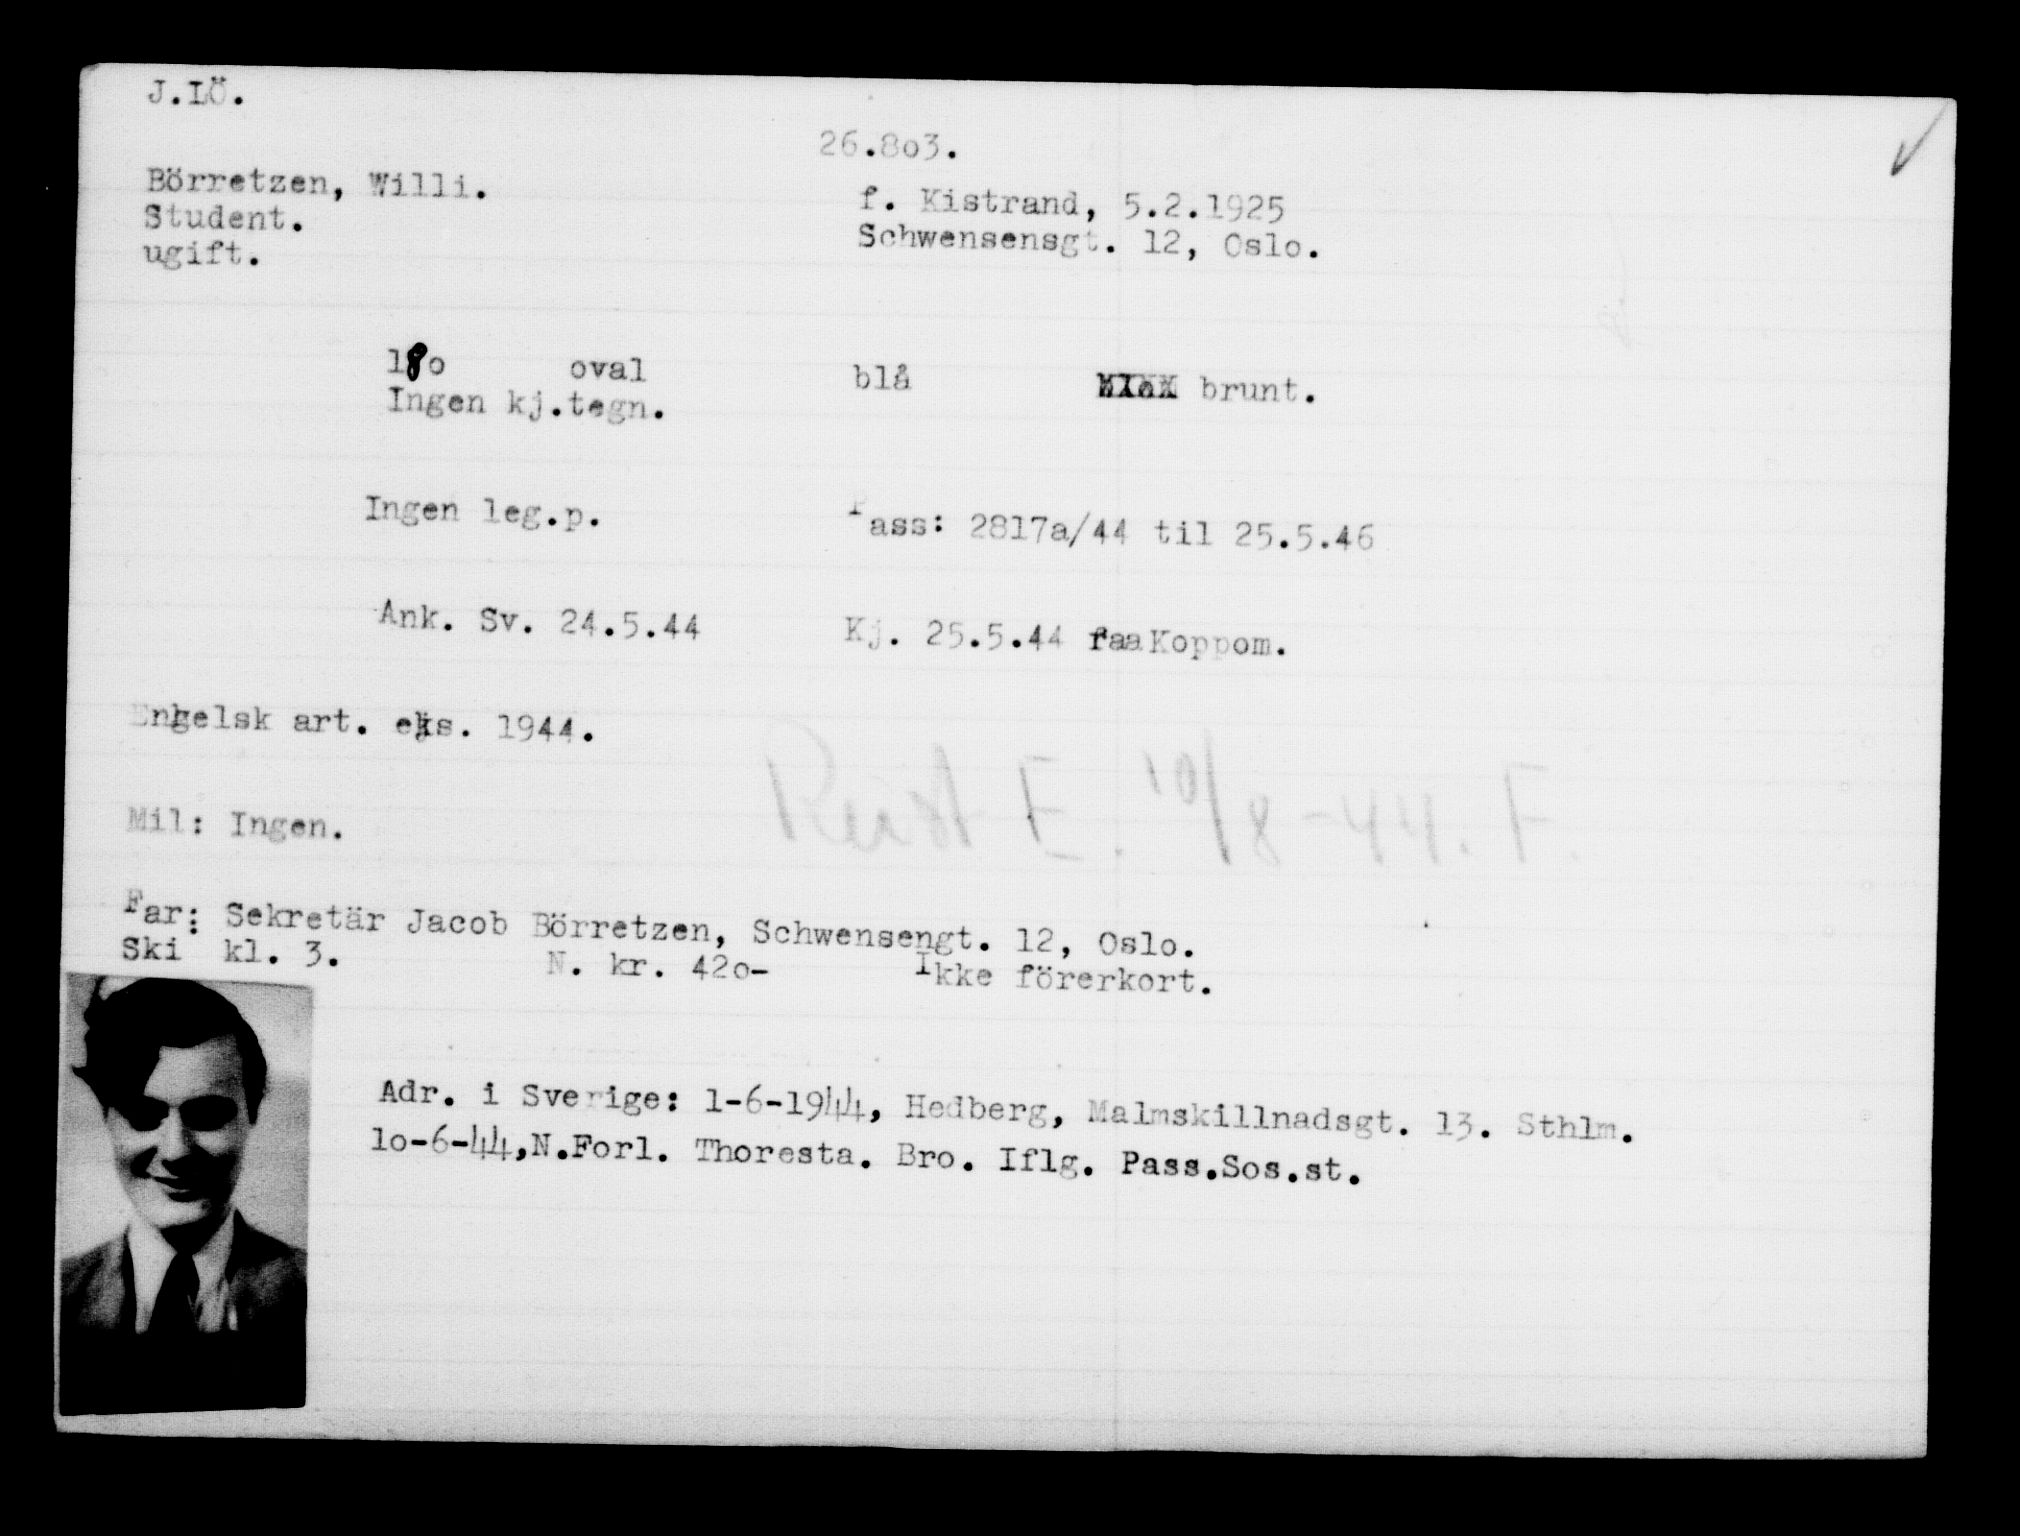 J.LÖ.
26.8o3.
Börretzen, Willi.
f. Kistrand, 5.2.1925
Student.
Schwensensgt. 12, Oslo.
ugift.
18o oval blå brunt.
Ingen kj.tegn.
Ingen leg.p. Pass: 2817a/44 til 25.5.46
Ank. Sv. 24.5.44 Kj. 25.5.44 faa Koppom.
Engelsk art. eks. 1944.
E. 10/8-44. F.
Mil: Ingen.
Far: Sekretär Jacob Börretzen, Schwensengt. 12, Oslo.
Ski kl. 3. N. kr. 42o- Ikke förerkort.
Adr. i Sverige: 1-6-1944, Hedberg, Malmskillnadsgt. 13. Sthlm.
1o-6-44,N.Forl. Thoresta. Bro. Iflg. Pass.Sos.st.